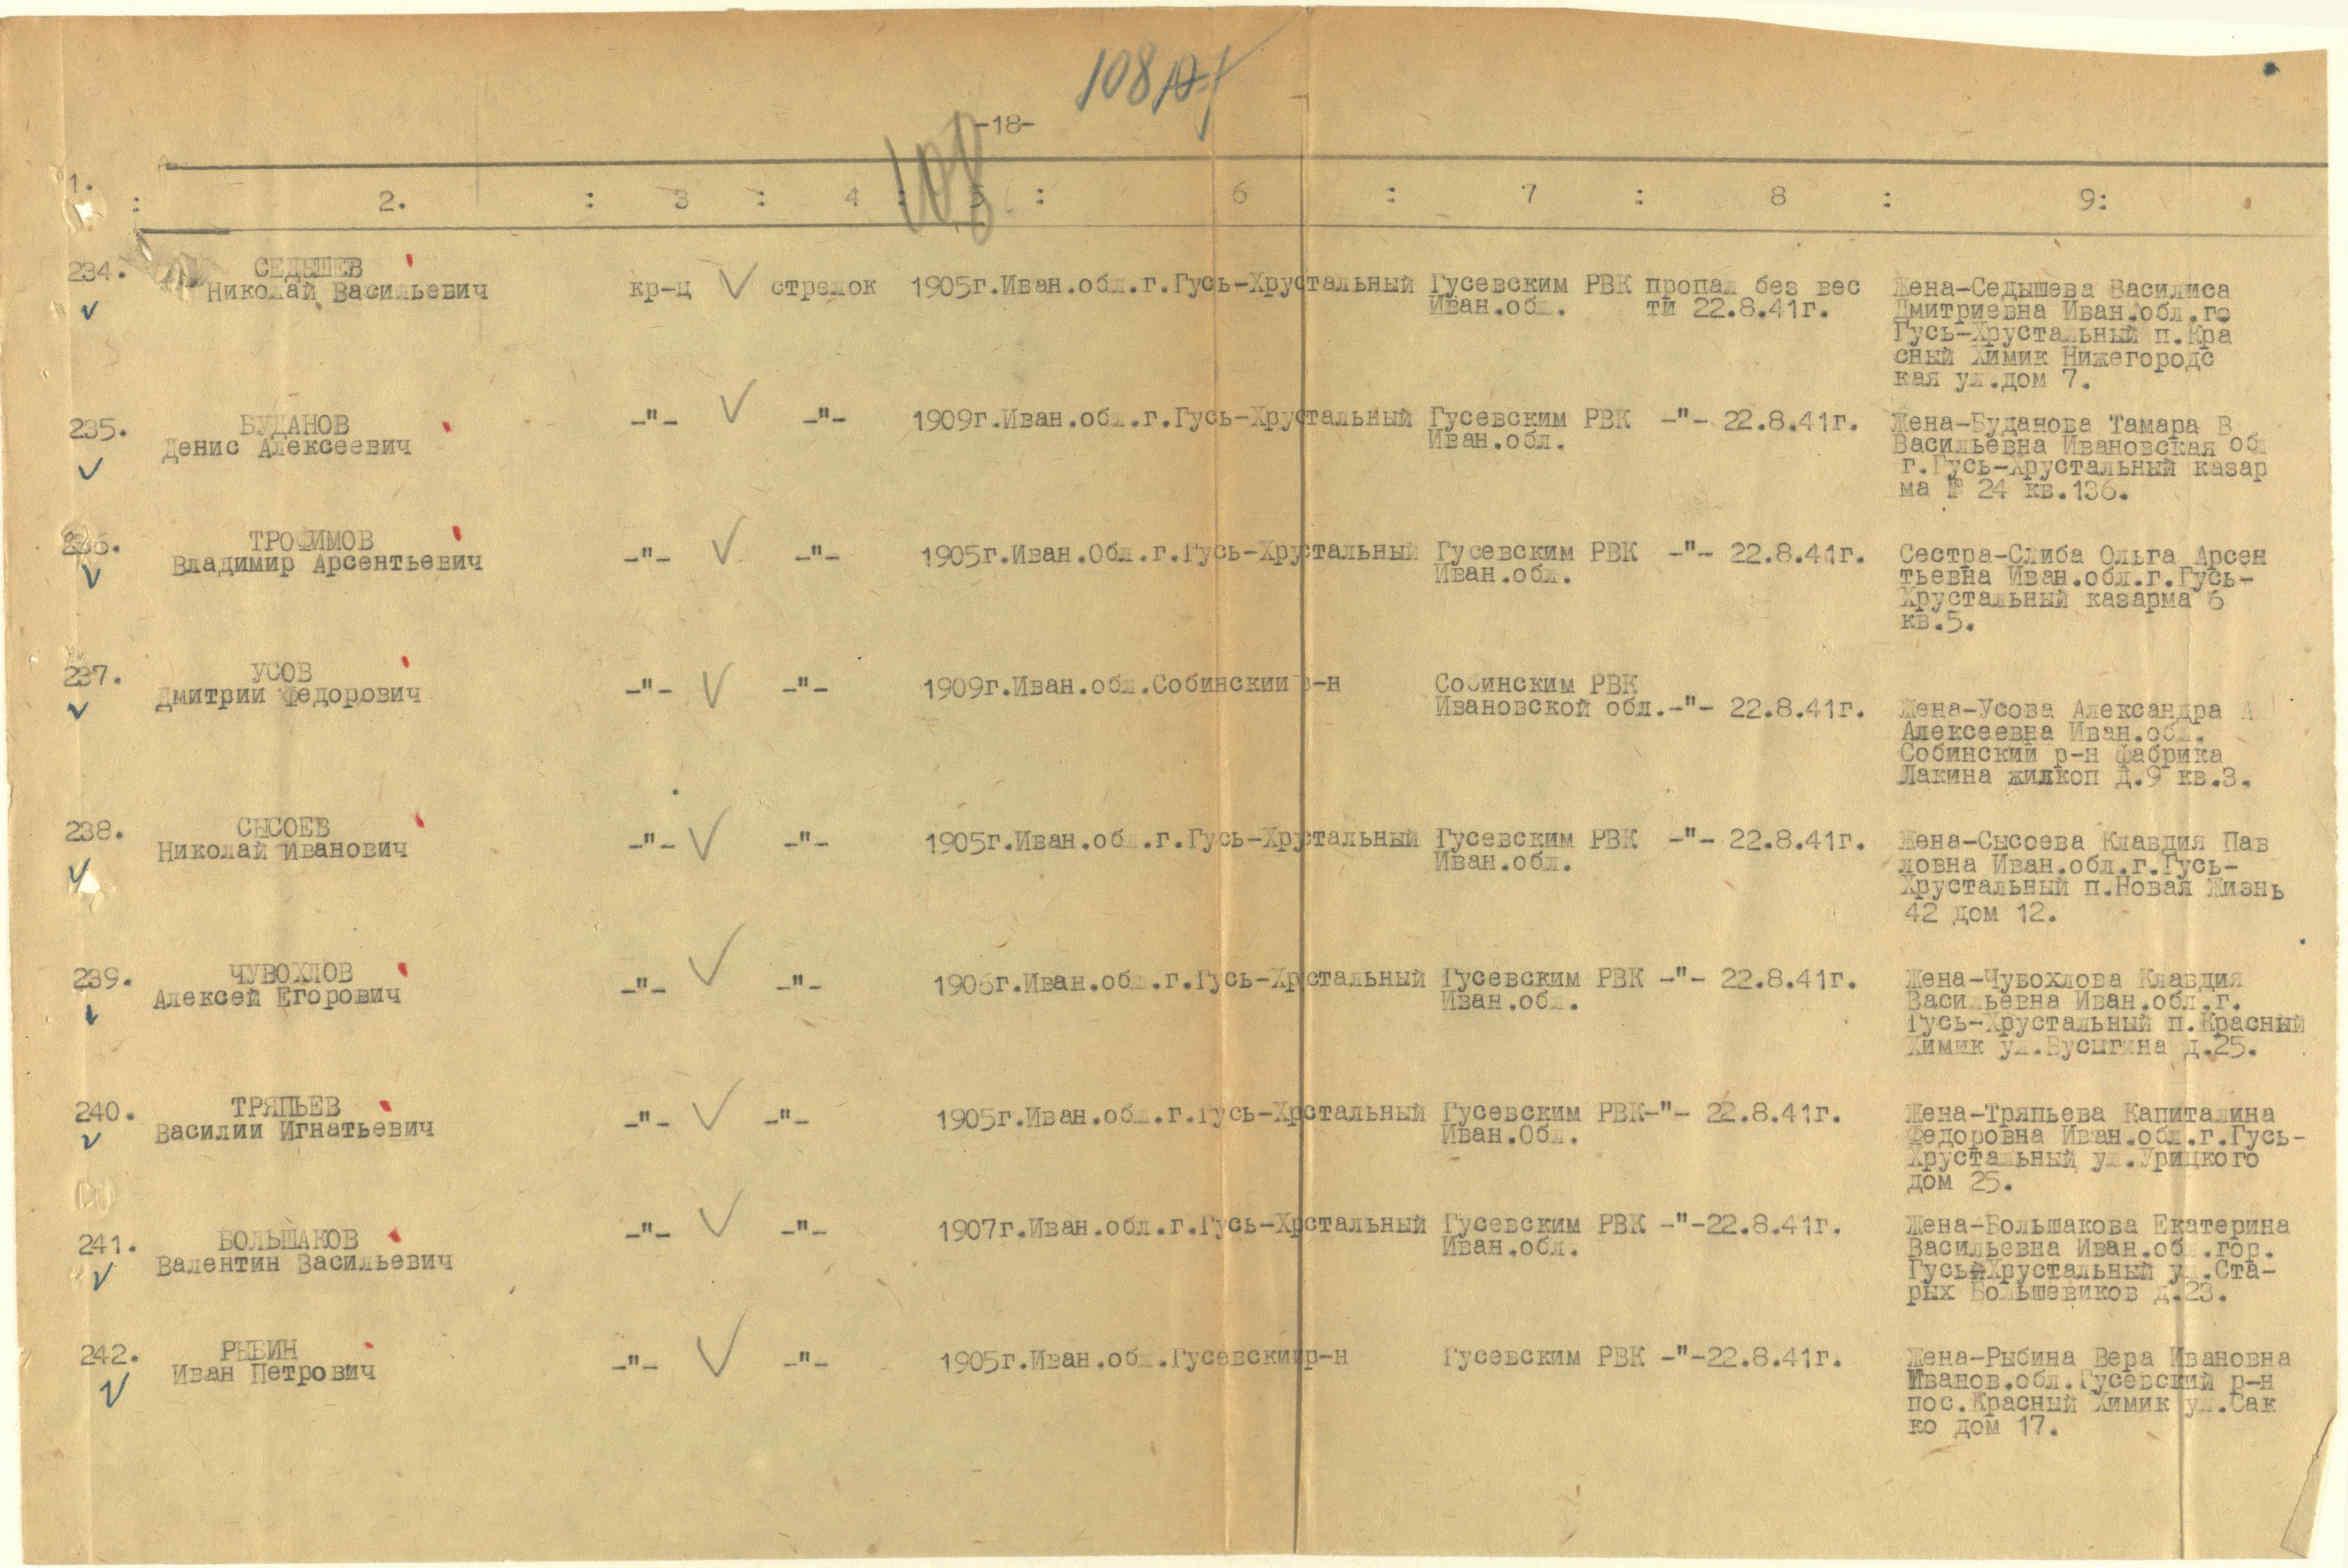 108
-18-
108
1. : 2. : 3 : 4 : 5 : 6 : 7 : 8 : 9:
234. СЕДЫШЕВ
Николай Васильевич кр-ц стрелок 1905г.Иван.обл.г.Гусь-Хрустальный Гусевским РВК пропал без вес Жена-Седышева Василиса
Иван.обл. ти 22.8.41г. Дмитриевна Иван.обл.го
Гусь-Хрустальный п.Кра
сный Химик Нижегородс
кая ул.дом 7.
235. БУДАНОВ -"- -"- 1909г.Иван.обл.г.Гусь-Хрустальный Гусевским РВК -"- 22.8.41г. Жена-Буданова Тамара В
Денис Алексеевич Иван.обл. Васильевна Ивановская обл
г.Гусь-Хрустальный казар
ма № 24 кв.136.
236. ТРОФИМОВ
Владимир Арсентьевич -"- -"- 1905г.Иван.Обл.г.Гусь-Хрустальный Гусевским РВК -"- 22.8.41г. Сестра-Слиба Ольга Арсен
Иван.обл. тьевна Иван.обл.г.Гусь-
Хрустальный казарма 6
кв.5.
237. УСОВ
Дмитрии Федорович -"- -"- 1909г.Иван.обл.Собинскии р-н Собинским РВК
Ивановской обл.-"- 22.8.41г. Жена-Усова Александра А
Алексеевна Иван.обл.
Собинский р-н фабрика
Лакина жилкоп д.9 кв.3.
238. СЫСОЕВ
Николай Иванович -"- -"- 1905г.Иван.обл.г.Гусь-Хрустальный Гусевским РВК -"- 22.8.41г. Жена-Сысоева Клавдия Пав
Иван.обл. ловна Иван.обл.г.Гусь-
Хрустальный п.Новая Жизнь
42 дом 12.
239. ЧУВОХЛОВ
Алексей Егорович -"- -"- 1906г.Иван.обл.г.Гусь-Хрстальный Гусевским РВК -"- 22.8.41г. Жена-Чувохлова Клавдия
Иван.обл. Васильевна Иван.обл.г.
Гусь-Хрустальный п.Красный
Химик ул.Бусыгина д.25.
240. ТРЯПЬЕВ
Василии Игнатьевич -"- -"- 1905г.Иван.обл.г.Гусь-Хрстальный Гусевским РВК-"- 22.8.41г. Жена-Тряпьева Капиталина
Иван.Обл. Федоровна Иван.обл.г.Гусь-
Хрустальный ул.Урицкого
дом 25.
241. БОЛЬШАКОВ -"- -"- 1907г.Иван.обл.г.Гусь-Хрстальный Гусевским РВК -"-22.8.41г. Жена-Большакова Екатерина
Валентин Васильевич Иван.обл. Васильевна Иван.обл.гор.
Гусь-Хрустальный ул.Ста-
рых Большевиков д.23.
242. РЫБИН
Иван Петрович -"- -"- 1905г.Иван.обл.Гусевскийр-н Гусевским РВК -"-22.8.41г. Жена-Рыбина Вера Ивановна
Иванов.обл.Гусевский р-н
пос.Красный Химик ул.Сак
ко дом 17.